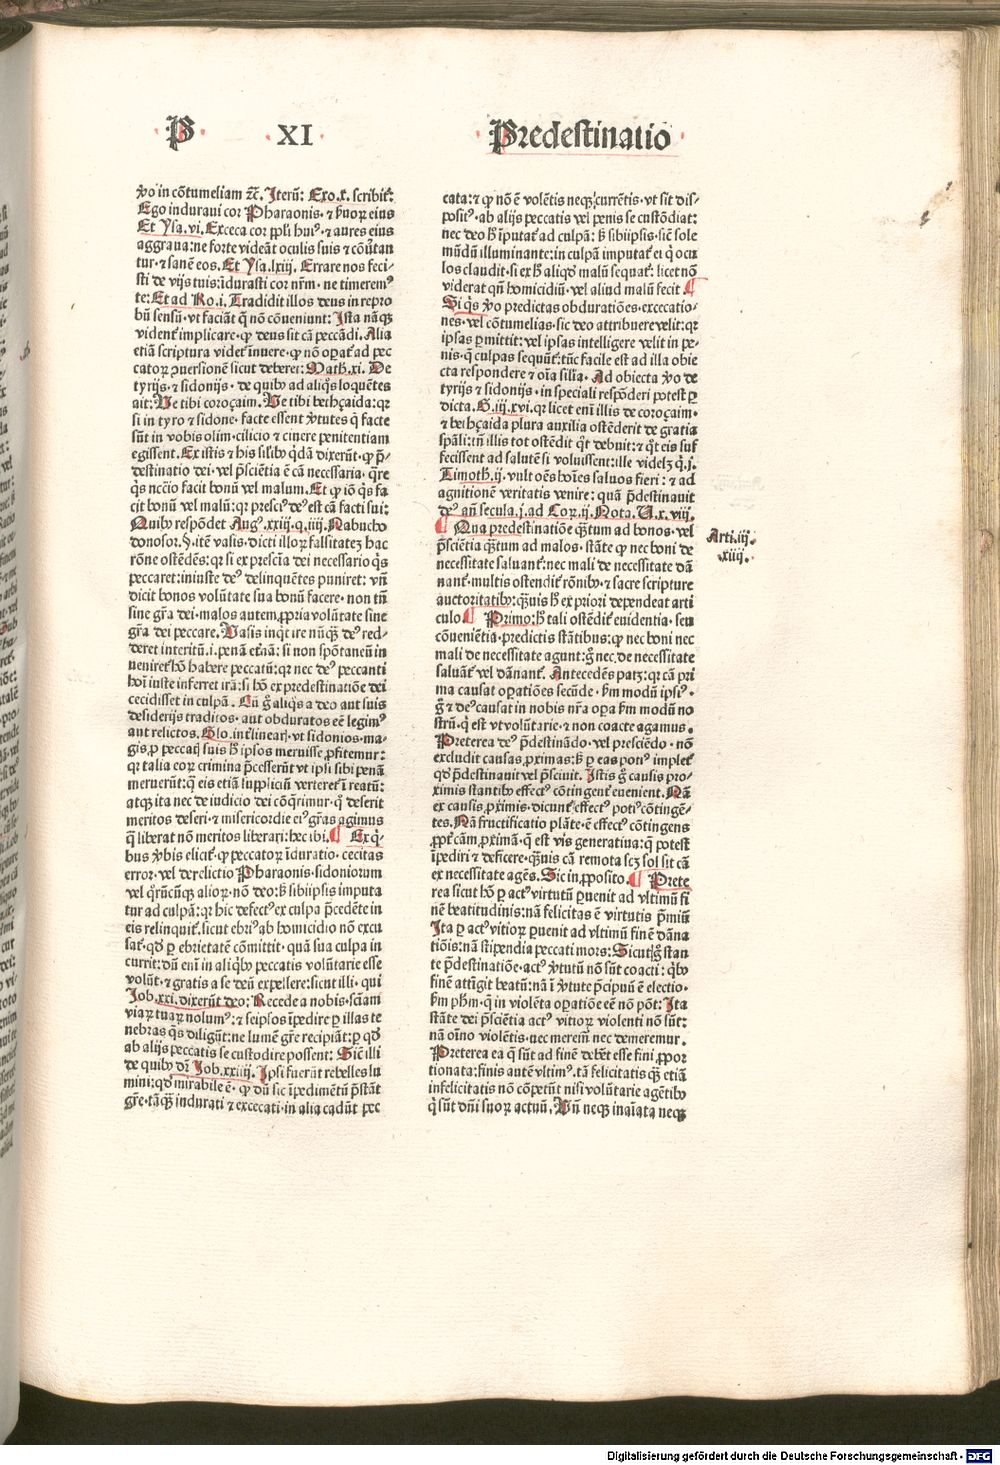 P XI Predestinatio
v̊o in cõtumeliam ⁊c̃. Iterũ: Exo.x. scribit̃.
Ego induraui cor Pharaonis. ⁊ ẜuoꝝ eius
Et Ysa.vi. Exceca cor ppl̃i huiꝰ. ⁊ aures eius
aggraua: ne forte videãt oculis suis ⁊ cõũtan
tur. ⁊ sanẽ eos. Et Ysa.lxiij. Errare nos feci-
sti de vijs tuis: ĩdurasti cor nr̃m. ne timeremꝰ
te: Et ad Ro.i. Tradidit illos deus in repro
bũ sensũ. vt faciãt q̃ nõ cõueniunt: Ista nãqꝫ
vident̃ implicare. ꝙ deus sit cã peccãdi. Alia
etiã scriptura videt̃ ĩnuere. ꝙ nõ oꝑat̃ ad pec
catoꝝ ꝯuersionẽ sicut deberet: Math.xi. De
tyrijs. ⁊ sidonijs. de quibꝰ ad aliq̃s loquẽtes
ait: Ve tibi coroçaim. Ve tibi bethçaida: qꝛ
si in tyro ⁊ sidone. facte essent v̓tutes q̃ facte
sũt in vobis olim. cilicio ⁊ cinere penitentiam
egissent. Ex istis ⁊ his sil̃ibꝰ q̃dã dixerũt. ꝙ p̃-
destinatio dei. vel p̃sciẽtia ẽ cã necessaria. q̃re
q̃s nccĩo facit bonũ vel malum. Et ꝙ iõ q̃s fa
cit bonũ vel malũ: qꝛ presciꝰ deꝰ est cã facti sui:
Quibꝰ respõdet Augꝰ.xxiij.q.iiij. Nabucho
donosor. §. itẽ vasis. dicti illoꝝ falsitatez hac
rõne ostẽdẽs: qꝛ si ex presciẽa dei necessario q̃s
peccaret: iniuste deꝰ delinquẽtes puniret: vñ
dicit bonos volũtate sua bonũ facere. non tñ
sine gr̃a dei. malos autem ꝓpria volũtate sine
gr̃a dei peccare. Vasis inqͥt ire nũqꝫ deꝰ red-
deret interitũ.i. penã etẽã: si non spõtaneũ in
ueniret̃ hõ habere peccatũ: qꝛ nec deꝰ peccanti
hoĩ iuste inferret irã: si hõ ex predestinatiõe dei
cecidisset in culpã. Cũ g̃ aliq̃s a deo aut suis
desiderijs traditos. aut obduratos eẽ legimꝰ
aut relictos. Glo. int̃linearẽ. vt sidonios. ma-
gis ꝓ peccatis suis hͦ ipsos meruisse ꝓfitemur:
qꝛ talia eoꝝ crimina p̃cesserũt vt ipsi sibi penã
meruerũt: q̃ eis etiã suppliciũ verteret̃ ĩ reatũ:
atqꝫ ita nec de iudicio dei cõq̃rimur. q̃ deserit
meritos deseri. ⁊ misericordie eiꝰ gr̃as agimus
q̃ liberat nõ meritos liberari: hec ibi. ¶ Ex q̃-
bus v̓bis elicit̃. ꝙ peccatoꝝ ĩduratio. cecitas
error. vel derelictio Pharaonis. sidoniorum
vel q̃rũcũqꝫ alioꝝ. nõ deo: hͦ sibiipsis imputa
tur ad culpã: qꝛ hic defectꝰ ex culpa p̃cedẽte in
eis relinquit̃. sicut ebriꝰ ab homicidio nõ excu
sat̃. qd̓ ꝑ ebrietatẽ cõmittit. quã sua culpa in
currit: dũ em̃ in aliq̃bꝰ peccatis volũtarie esse
volũt. ⁊ gratis a se deũ expellere: sicut illi. qui
Iob.xxi. dixerũt deo: Recede a nobis. sciam
viaꝝ tuaꝝ nolumꝰ: ⁊ seipsos ĩpedire ꝑ illas te
nebras q̃s diligũt: ne lumẽ gr̃e recipiãt: ꝑ qd̓
ab alijs peccatis se custodire possent: Sic̃ illi
de quibꝰ dr̃ Iob.xxiiij. Ipsi fuerũt rebelles lu
mini: qd̓ mirabile ẽ. ꝙ dũ sic ĩpedimẽtũ p̃stãt
gr̃e. tãqꝫ indurati ⁊ excecati. in alia cadũt pec
cata: ⁊ ꝙ nõ ẽ volẽtis neqꝫ currẽtis. vt sit dis-
positꝰ. ab alijs peccatis vel penis se custõdiat:
nec deo hͦ ĩputat̃ ad culpã: hͦ sibiipsis. sic̃ sole
mũdũ illuminante: in culpã imputat̃ ei q̃ ocu
los claudit. si ex hͦ aliqd̓ malũ sequat̃: licet nõ
viderat qñ homicidiũ. vel aliud malũ fecit ¶
Si q̃s v̊o predictas obduratiões. excecatio-
nes. vel cõtumelias. sic deo attribuere velit: qꝛ
ipsas ꝑmittit: vel ipsas intelligere velit in pe-
nis. q̃ culpas sequũt̃: tũc facile est ad illa obie
cta respondere ⁊ oĩa sil̃ia. Ad obiecta v̊o de
tyrijs ⁊ sidonijs. in speciali respõderi potest ꝑ
dicta. G.iij.xvi. qꝛ licet em̃ illis de coroçaim.
⁊ bethçaida plura auxilia ostẽderit de gratia
spãli: tñ illis tot ostẽdit q̃t debuit: ⁊ q̃t eis suf
fecissent ad salutẽ si voluissent: ille videlꝫ q̃.j.
Timoth.ij. vult oẽs hoĩes saluos fieri: ⁊ ad
agnitionẽ veritatis venire: quã p̃destinauit
deꝰ añ secula.j.ad Coꝝ.ij. Nota. U.x.viij.
¶ Qua predestinatiõe q̃ꝫtum ad bonos. vel
p̃sciẽtia q̃ꝫtum ad malos. stãte ꝙ nec boni de
necessitate saluant̃: nec mali de necessitate dã
nant̃. multis ostendit̃ rõnibꝰ. ⁊ sacre scripture
auctoritatibꝰ: q̃ꝫuis hͦ ex priori dependeat arti
culo. ¶ Primo: hͦ tali ostẽdit̃ euidentia. seu
cõueniẽtia. predictis stãtibus: ꝙ nec boni nec
mali de necessitate agunt: g̃ nec de necessitate
saluãt̃ vel dãnant̃. Antecedẽs patꝫ: qꝛ cã pri
ma causat oꝑatiões secũde. hͫ modũ ipsiꝰ.
g̃ ⁊ deꝰ causat in nobis nr̃a oꝑa hͫ modũ no
strũ. q̃ est vt volũtarie. ⁊ non coacte agamus.
Preterea deꝰ p̃destinãdo. vel presciẽdo. nõ
excludit causas ꝓximas: hͦ ꝑ eas potiꝰ implet̃
qd̓ p̃destinauit vel p̃sciuit. Istis g̃ causis pro-
ximis stantibꝰ effectꝰ cõtingent̃ euenient. Nã
ex causis ꝓximis. dicunt̃ effectꝰ potiꝰ cõtingẽ-
tes. Nã fructificatio plãte. ẽ effectꝰ cõtingens
ꝓpt̃ cãm ꝓximã. q̃ est vis generatiua: q̃ potest
ĩpediri ⁊ deficere. q̃ꝫuis cã remota scꝫ sol sit cã
ex necessitate agẽs. Sic in ꝓposito. ¶ Prete
rea sicut hõ ꝑ actꝰ virtutũ ꝑuenit ad vltimũ fi
nẽ beatitudinis: nã felicitas ẽ virtutis p̃miũ
Ita ꝑ actꝰ vitioꝝ ꝑuenit ad vltimũ finẽ dãna
tiõis: nã stipendia peccati mors: Sicut g̃ stan
te p̃destinatiõe. actꝰ v̓tutũ nõ sũt coacti: q̃bꝰ
finẽ attĩgit beatũ: nã ĩ v̓tute p̃cipuũ ẽ electio.
hͫ ph̃m. q̃ in violẽta oꝑatiõe eẽ nõ põt: Ista
stãte dei p̃sciẽtia actꝰ vitioꝝ violenti nõ sũt:
nã oĩno violẽtis. nec merem̃ nec demeremur.
Preterea ea q̃ sũt ad finẽ debẽt esse fini ꝓpor
tionata: finis autẽ vltimꝰ. tã felicitatis qꝫ etiã
infelicitatis nõ cõpetũt nisi volũtarie agẽtibꝰ
q̃ sũt dñi suoꝝ actuũ. Vñ neqꝫ inaĩata neqꝫ
Arti.iij.
xiiij.
Digitalisierung gefördert durch die Deutsche Forschungsgemeinschaft - DFG